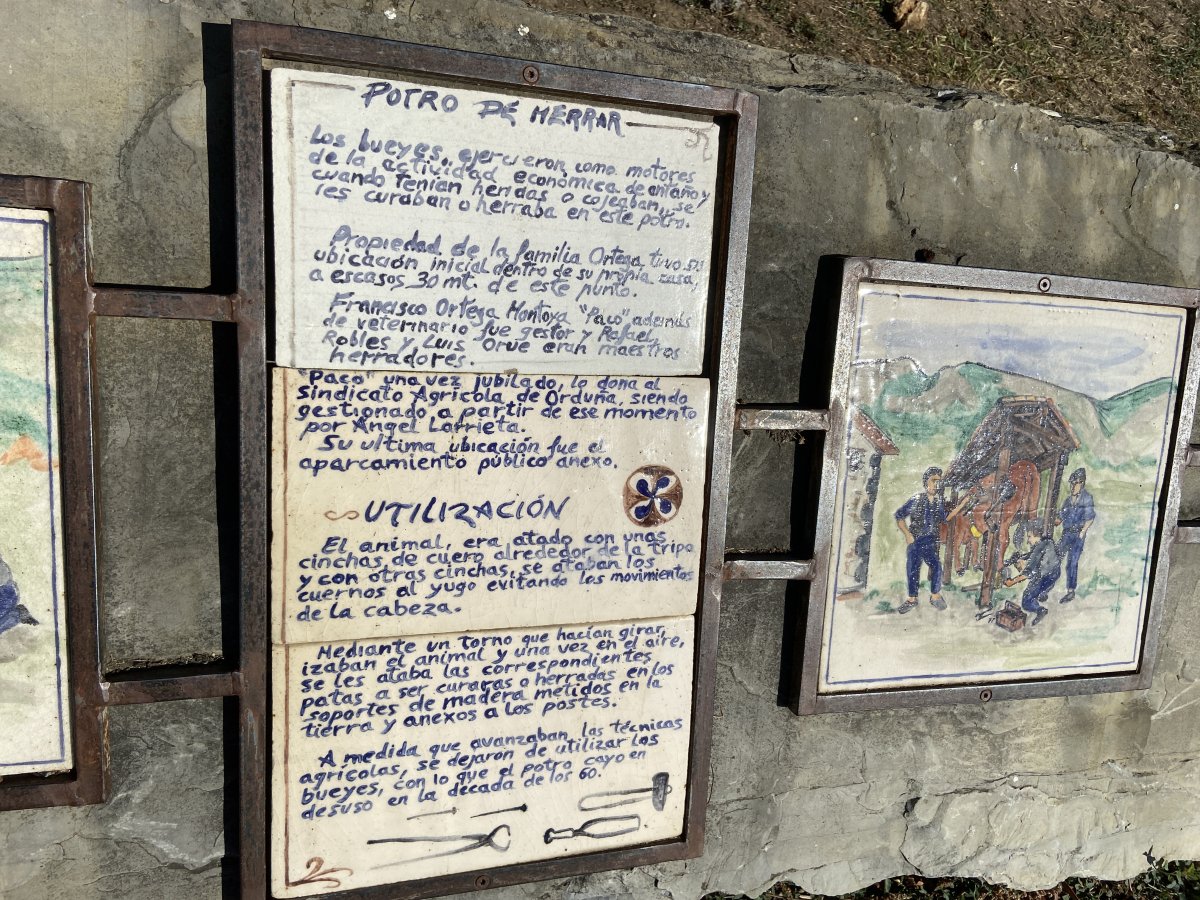 POTRO DE HERRAR
Los bueyes, ejercieron como motores
de la actividad económica de antaño y
cuando tenían heridas o cojeaban, se
les curaban o herraba en este potro.
Propiedad de la familia Ortega, tuvo su
ubicación inicial dentro de su propia casa,
a escasos 30 mt. de este punto.
Francisco Ortega Montoya "Paco" además
de veterinario fue gestor y Rafael
Robles y Luis Orue eran maestros
herradores.
"Paco" una vez jubilado, lo dona al
Sindicato Agrícola de Orduña, siendo
gestionado a partir de ese momento
por Angel Larrieta.
Su ultima ubicación fue el
aparcamiento público anexo.
UTILIZACIÓN
El animal, era atado con unas
cinchas de cuero alrededor de la tripa
y con otras cinchas, se ataban los
cuernos al yugo evitando los movimientos
de la cabeza.
Mediante un torno que hacían girar,
izaban el animal y una vez en el aire,
se les ataba las correspondientes
patas a ser curaras o herradas en los
soportes de madera metidos en la
tierra y anexos a los postes.
A medida que avanzaban las técnicas
agrícolas, se dejaron de utilizar los
bueyes, con lo que el potro cayo en
desuso en la década de los 60.